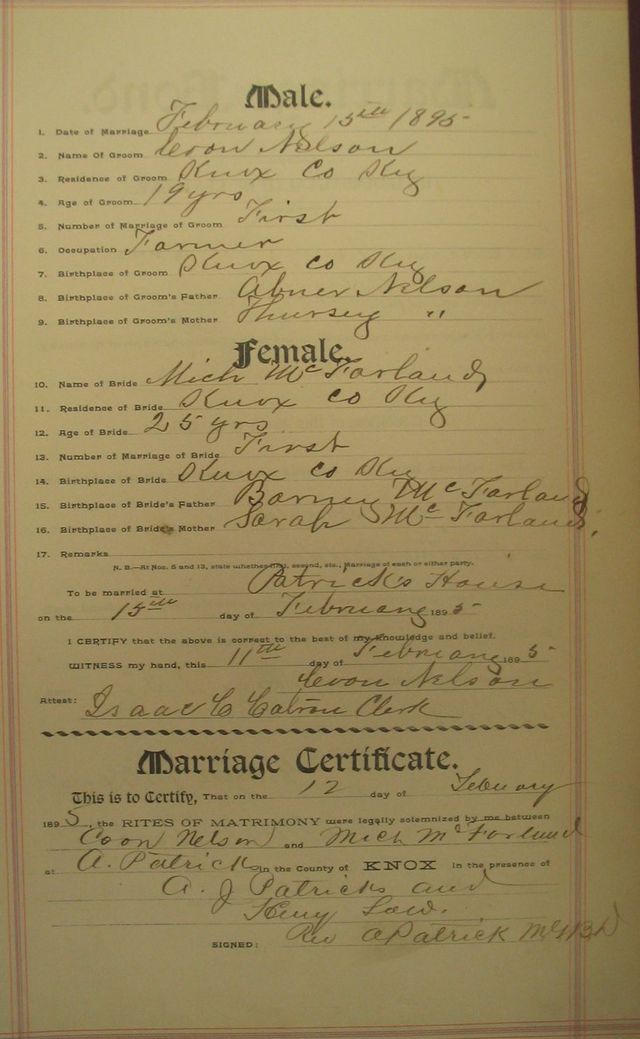 Male.
1. Date of Marriage February 15th 1895
2. Name Of Groom Coon Nelson
3. Residence of Groom Knox Co Ky
4. Age of Groom 19 yrs
5. Number of Marriage of Groom First
6. Occupation Farmer
7. Birthplace of Groom Knox Co Ky
8. Birthplace of Groom's Father Abner Nelson
9. Birthplace of Groom's Mother Thursey "
Female.
10. Name of Bride Mich McFarland
11. Residence of Bride Knox Co Ky
12. Age of Bride 25 yrs
13. Number of Marriage of Bride First
14. Birthplace of Bride Knox Co Ky
15. Birthplace of Bride's Father Barney McFarland
16. Birthplace of Bride's Mother Sarah McFarland
17. Remarks
N. B.—At Nos. 5 and 13, state whether first, second, etc., Marriage of each or either party.
To be married at Patrick's House
on the 15th day of February 1895
I CERTIFY that the above is correct to the best of my knowledge and belief.
WITNESS my hand, this 11th day of February 1895
Coon Nelson
Attest: Isaac C Catron Clerk
Marriage Certificate.
This is to Certify, That on the 12 day of Febuary
1895, the RITES OF MATRIMONY were legally solemnized by me between
Coon Nelson and Mich McForland
at A. Patricks in the County of KNOX in the presence of
A. J Patricks and
Law.
SIGNED: Rev A Patrick